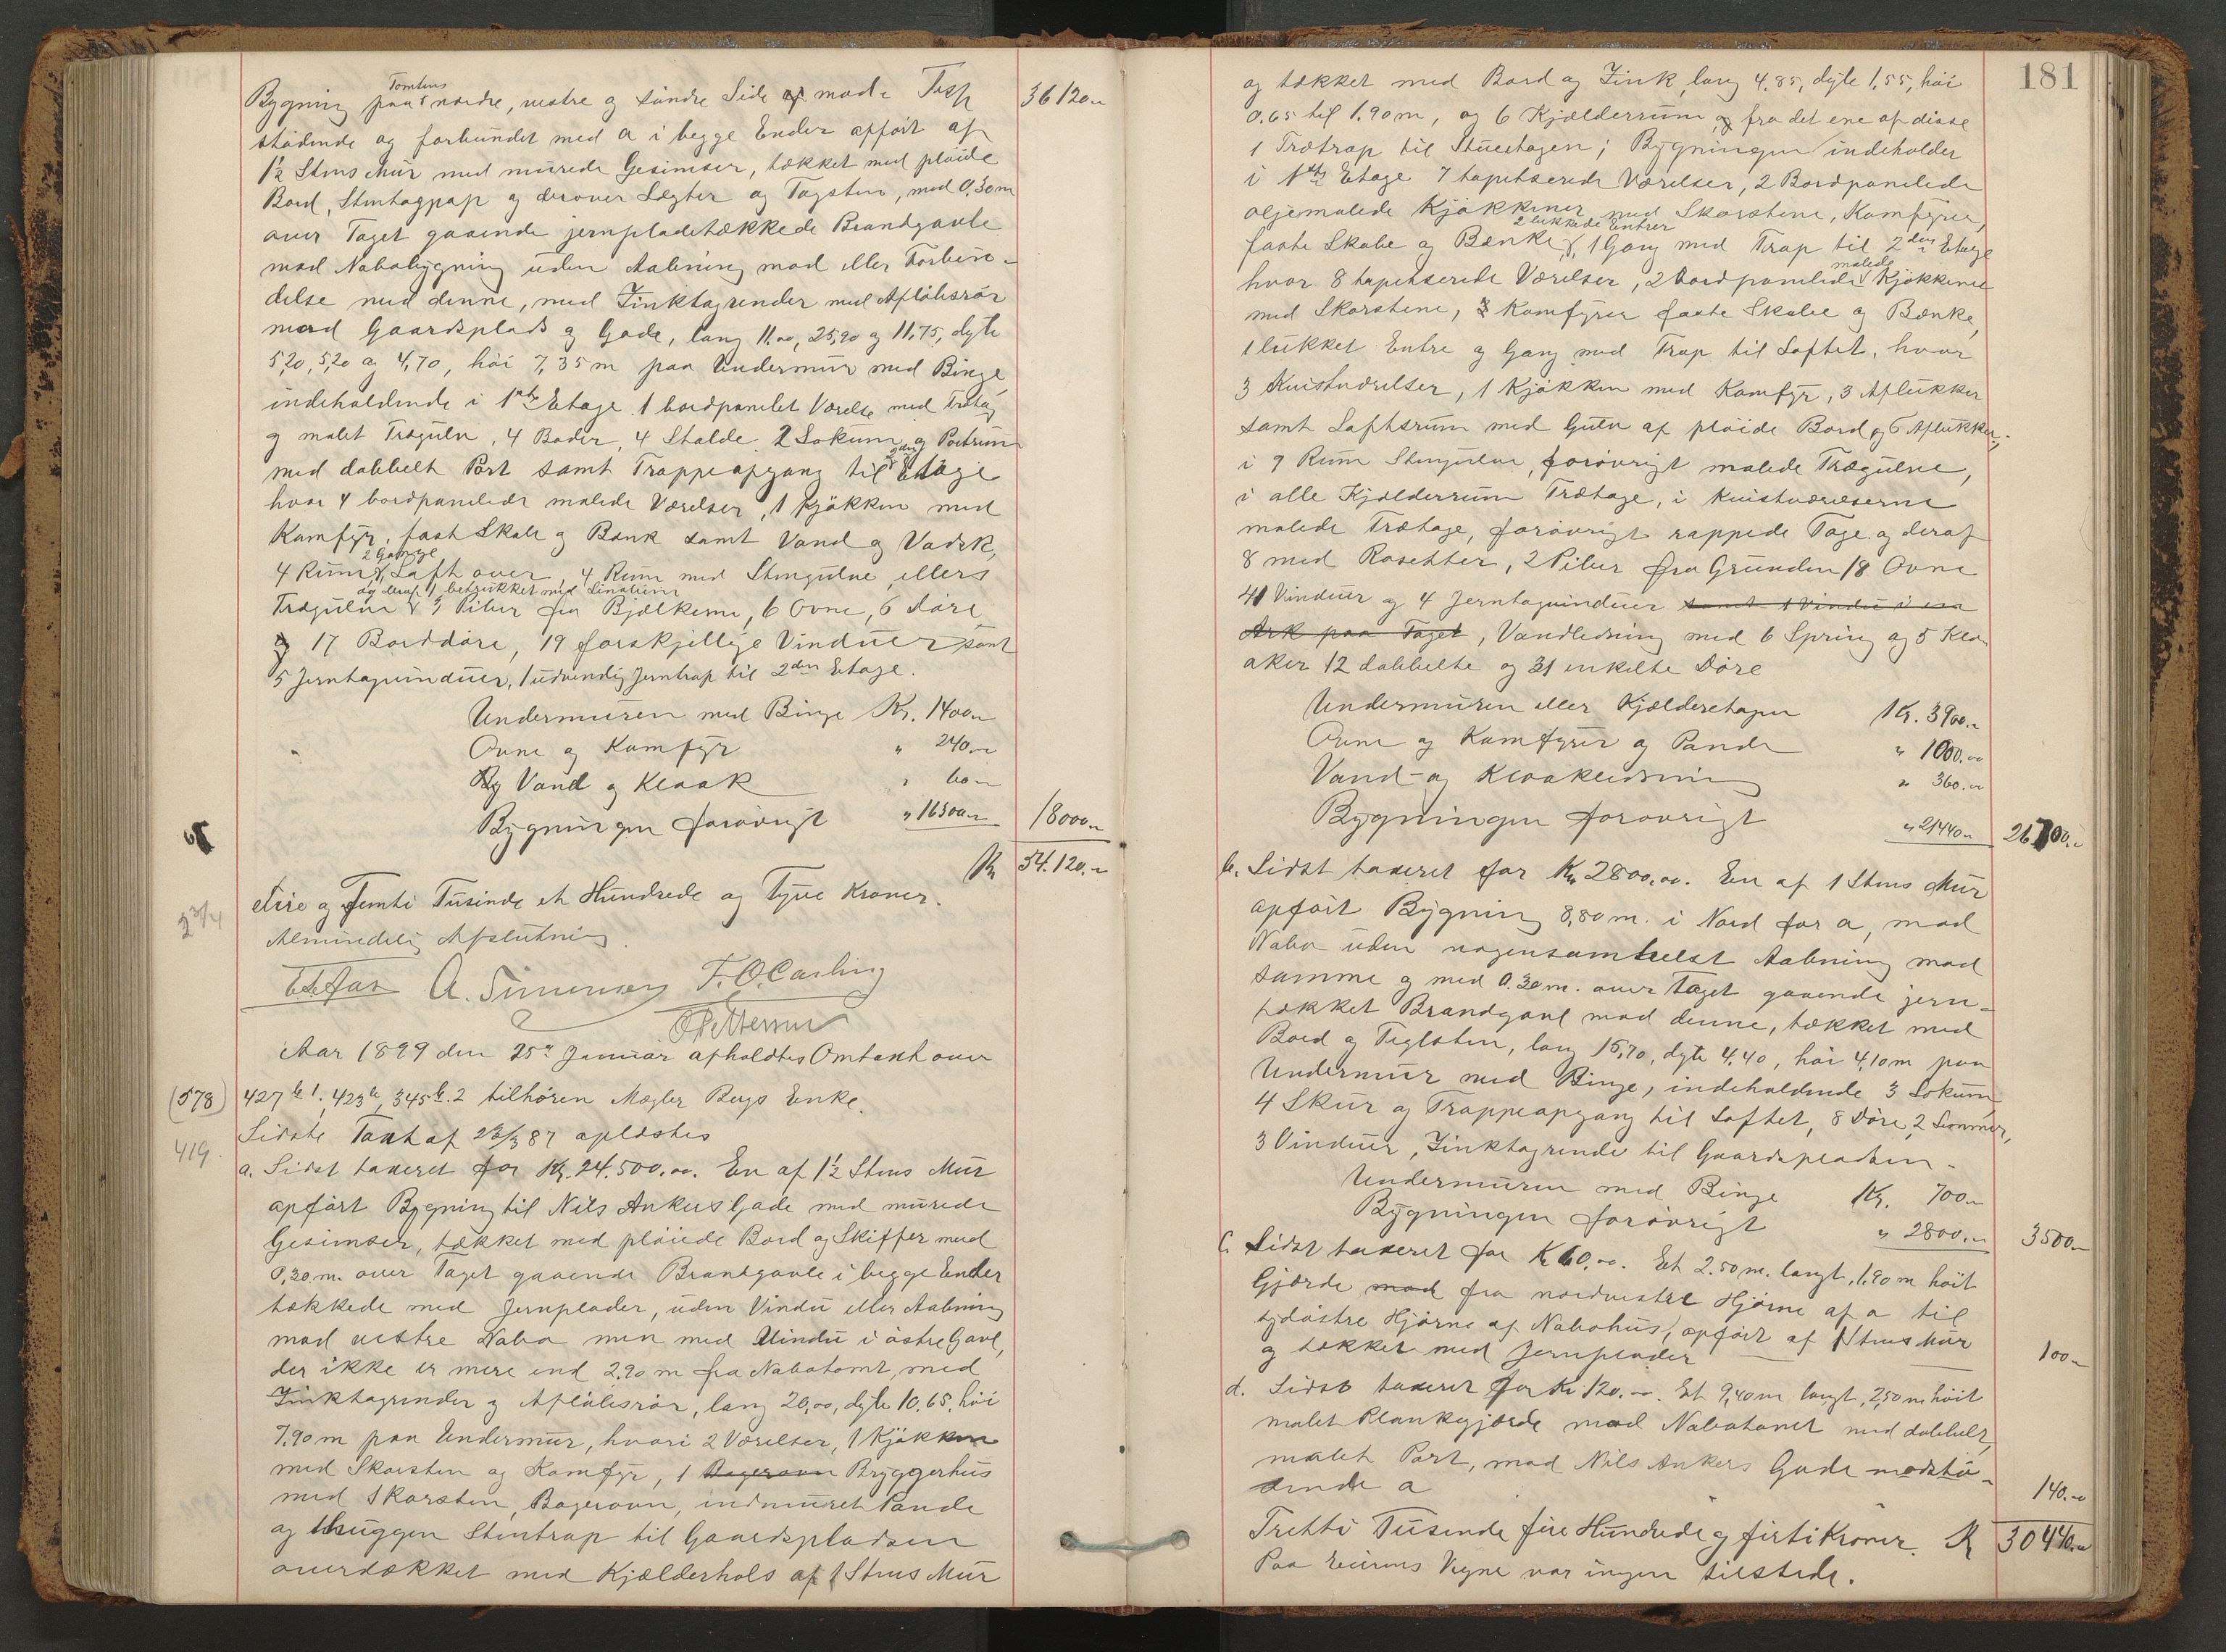 Bygning paa Tomtens nordre, vestre og søndre Side mod
stødende og forbundet med a i begge Ender opført af
1½ Stens Mur med murede Gesimser, tækket med pløide
Bord, Stentagpap og derover Lægter og Tagsten, med 0,30 m
over Taget gaaende jernpladetækkede Brandgavle
mod Nabobygning uden Aabning mod eller Forbin-
delse med denne, med Zinktagrender med Afløbsrør
mod Gaardsplads og Gade, lang 11,00, 25,90 og 11,75, dybe
5,20, 5,20 og 4,70, høi 7,35 m paa Undermur med Binge
indeholdende i 1ste Etage 1 bordpanelet Værelse med Trætag
og malet Trægulv, 4 Boder, 4 Stalde 2 Lokum og Portrum
med dobbelt Port samt Trappeopgang til 2den Etage
hvor 4 bordpanelede malede Værelser, 1 Kjøkken med
Komfyr, fast Skab og Bænk samt Vand og Vadsk,
4 Rum, 2 Gange, Loft over, 4 Rum med Stengulve, ellers
Trægulve og deraf 1 betrukket med Linolium 3 Piber fra Bjælkerne, 6 Ovne, 6 Døre
17 Borddøre, 19 forskjellige Vinduer samt
5 Jerntagvinduer, 1 udvendig Jerntrap til 2den Etage.
36120 "
Undermuren med Binge Kr. 1400 "
Ovne og Komfyr " 240 "
Vand og Kloak " 60 "
Bygningen forøvrigt " 16300 " 18000 "
Kr 54.120. "
Fire og Femti Tusinde et Hundrede og Tyve Kroner.
2 3/4
Almindelig Afslutning.
A. Simensen T. O. Carling
O Pettersen
Aar 1899 den 25de Januar afholdtes Omtaxt over
(578) 427 b 1, 423 b, 345 b. 2 tilhøren Mægler Enke.
Sidste Taxt af 23/3 87 oplæstes
419.
a. Sidst taxeret for Kr. 24.500.00. En af 1½ Stens Mur
opført Bygning til Nils Ankers Gade med murede
Gesimser, tækket med pløiede Bord og Skiffer med
0,30 m. over Taget gaaende Brandgavle i begge Ender
tækkede med Jernplader, uden Vindu eller Aabning
mod vestre Nabo men med Vindu i østre Gavl,
der ikke er mere end 2,90 m fra Nabotomt, med
Zinktagrender og Afløbsrør, lang 20,00, dybe 10,65, høi
7,90 m paa Undermur, hvori 2 Værelser, 1 Kjøkken
med Skorsten og Komfyr, 1 Bagerovn Bryggerhus
med Skorsten, Bagerovn, indmuret Pande
og Stentrap til Gaardspladsen
overdækket med Kjælderhals af 1 Stens Mur
181
og tækket med Bord og Zink, lang 4,85, dybe 1,55, høi
0,65 til 1,90 m, og 6 Kjælderrum, fra det ene af disse
1 Trætrap til Stueetagen; Bygningen indeholder
i 1ste Etage 7 tapetserede Værelser, 2 Bordpanelede
oljemalede Kjøkkener med Skorstene, Komfyrer,
faste Skabe og Bænke, 2 lukkede Entreer, 1 Gang med Trap til 2den Etage
hvor 8 tapetserede Værelser, 2 bordpanelede malede Kjøkkener
med Skorstene, Komfyrer faste Skabe og Bænke,
1 lukket Entre og Gang med Trap til Loftet, hvor
3 Kvistværelser, 1 Kjøkken med Komfyr, 3 Aflukker
samt Loftsrum med Gulv af pløide Bord og 6 Aflukker;
i 7 Rum Stengulve, forøvrigt malede Trægulve,
i alle Kjælderrum Trætage, i Kvistværelserne
malede Trætage, forøvrigt rappede Tage og deraf
8 med Rosetter, 2 Piber fra Grunden 18 Ovne
41 Vinduer og 4 Jerntagvinduer samt 1 Vindu i en
Ark paa Taget, Vandledning med 6 Spring og 5 Klo-
aker 12 dobbelte og 31 enkelte Døre
Undermuren eller Kjælderetagen Kr. 3900. "
Ovne og Komfyrer og Pande " 1000.00
Vand- og Kloakledning " 360.00
Bygningen forøvrigt " 21440 " 26700. "
b. Sidst taxeret for Kr 2800.00. En af 1 Stens Mur
opført Bygning 8,80 m. i Nord for a, mod
Nabo uden nogensomhelst Aabning mod
samme og med 0.30 m. over Taget gaaende jern-
tækket Brandgavl mod denne, tækket med
Bord og Teglsten, lang 15,70, dybe 4,40, høi 4,10 m paa
Undermur med Binge, indeholdende 3 Lokum,
4 Skur og Trappeopgang til Loftet, 8 Døre, 2 Lemmer,
3 Vinduer, Zinktagrende til Gaardspladsen.
Undermuren med Binge Kr. 700 "
Bygningen forøvrigt " 2800. " 3500 "
c. Sidst taxeret for Kr 60.00. Et 2.50 m. langt, 1.90 m høit
Gjærde mod fra nordvestre Hjørne af a til
sydøstre Hjørne af Nabohus, opført af 1 Stens Mur
og tækket med Jernplader 100 "
d. Sidst taxeret for Kr 120. ". Et 9,40 m langt, 2,50 m høit
malet Plankegjærde mod Nabotomt med dobbelt,
malet Port, mod Nils Ankers Gade modstø-
dende a 140. "
Tretti Tusende fire Hundrede og firti Kroner. Kr 30440. "
Paa Eierens Vegne var ingen tilstede.